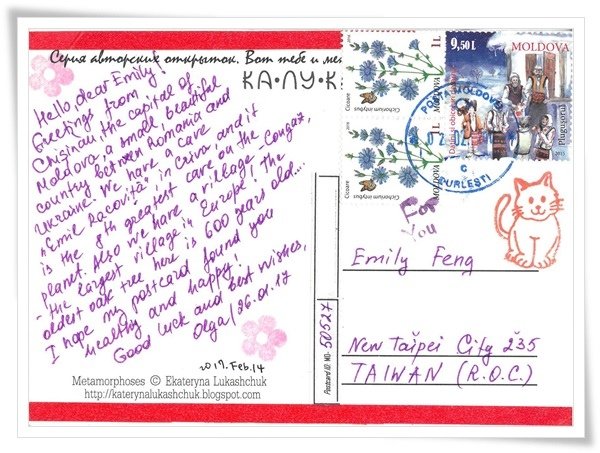 Серия авторских открыток. Вот тебе и ме
КА•ЛУ•К
Hello, dear Emily!
Greetings from
Chisinau the capital of
Moldova, a small, beautiful
country between Romania and
Ukraine. We have a cave
„Emil Racoviţă" in Criva, and it
is the 8th greatest cave on the
planet. Also we have a village - Congaz,
- the largest village in Europe!, the
oldest oak tree here is 600 years old...
I hope my postcard found you
healthy and happy!
Good luck and best wishes,
Olga/26.01.17
2017.Feb.14
Metamorphoses © Ekateryna Lukashchuk
http://katerynalukashchuk.blogspot.com
Postcard ID: MD- 50527
2016
1 L
MOLDOVA
Cicoare
Cichorium intybus
2016
1 L
MOLDOVA
Cicoare
Cichorium intybus
9,50 L
MOLDOVA
Pluguşorul
2015
POŞTA MOLDOVEI
DURLEŞTI
For
You
Emily Feng
New Taipei City 235
TAIWAN (R.O.C.)